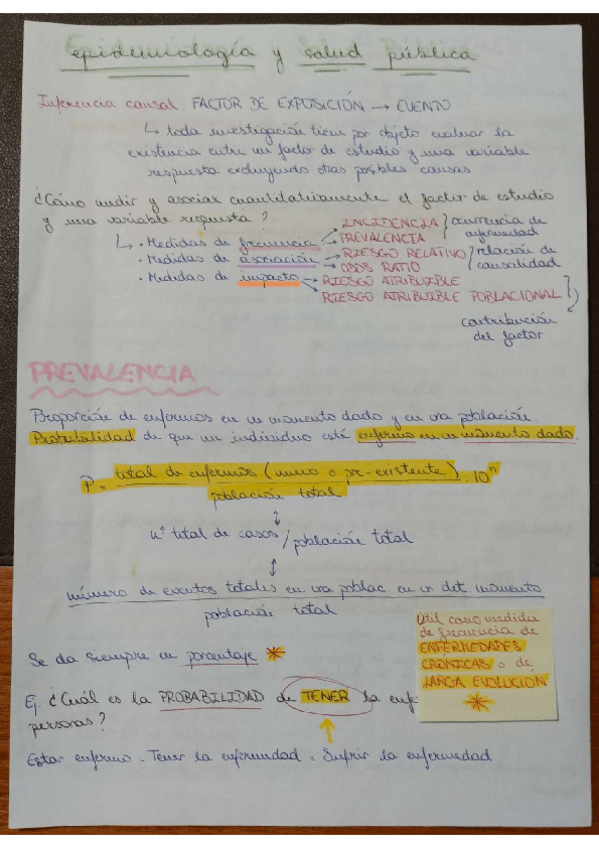 epidemiología y salud pública
Inferencia causal. FACTOR DE EXPOSICIÓN → EVENTO
↳ toda investigación tiene por objeto evaluar la
existencia entre un factor de estudio y una variable
respuesta excluyendo otras posibles causas
¿Cómo medir y asociar cuantitativamente el factor de estudio
y una variable respuesta?
↳ · Medidas de frecuencia → INCIDENCIA
→ PREVALENCIA
} ocurrencia de
enfermedad
· Medidas de asociación → RIESGO RELATIVO
→ ODDS RATIO
} relación de
causalidad
· Medidas de impacto → RIESGO ATRIBUIBLE
→ RIESGO ATRIBUIBLE POBLACIONAL
}
contribución
del factor
PREVALENCIA
Proporción de enfermos en un momento dado y en una población.
Probabilidad de que un individuo esté enfermo en un momento dado.
P = total de enfermos (nuevo o pre-existente) · 10ⁿ
población total
↕
nº total de casos / población total
↕
número de eventos totales en una poblac en un det. momento
población total
Se da siempre en porcentaje *
Útil como medida
de frecuencia de
ENFERMEDADES
CRÓNICAS o de
LARGA EVOLUCIÓN
*
Ej. ¿Cuál es la PROBABILIDAD de TENER la enf
personas?
↑
Estar enfermo = Tener la enfermedad = Sufrir la enfermedad